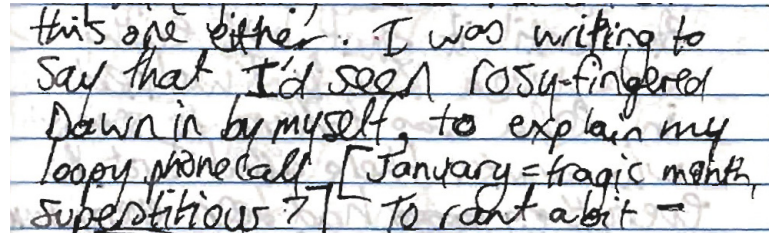 this one either. I was writing to
say that I'd seen rosy-fingered
Dawn in by myself, to explain my
loopy phonecall [January = tragic month,
superstitious?] To rant a bit -